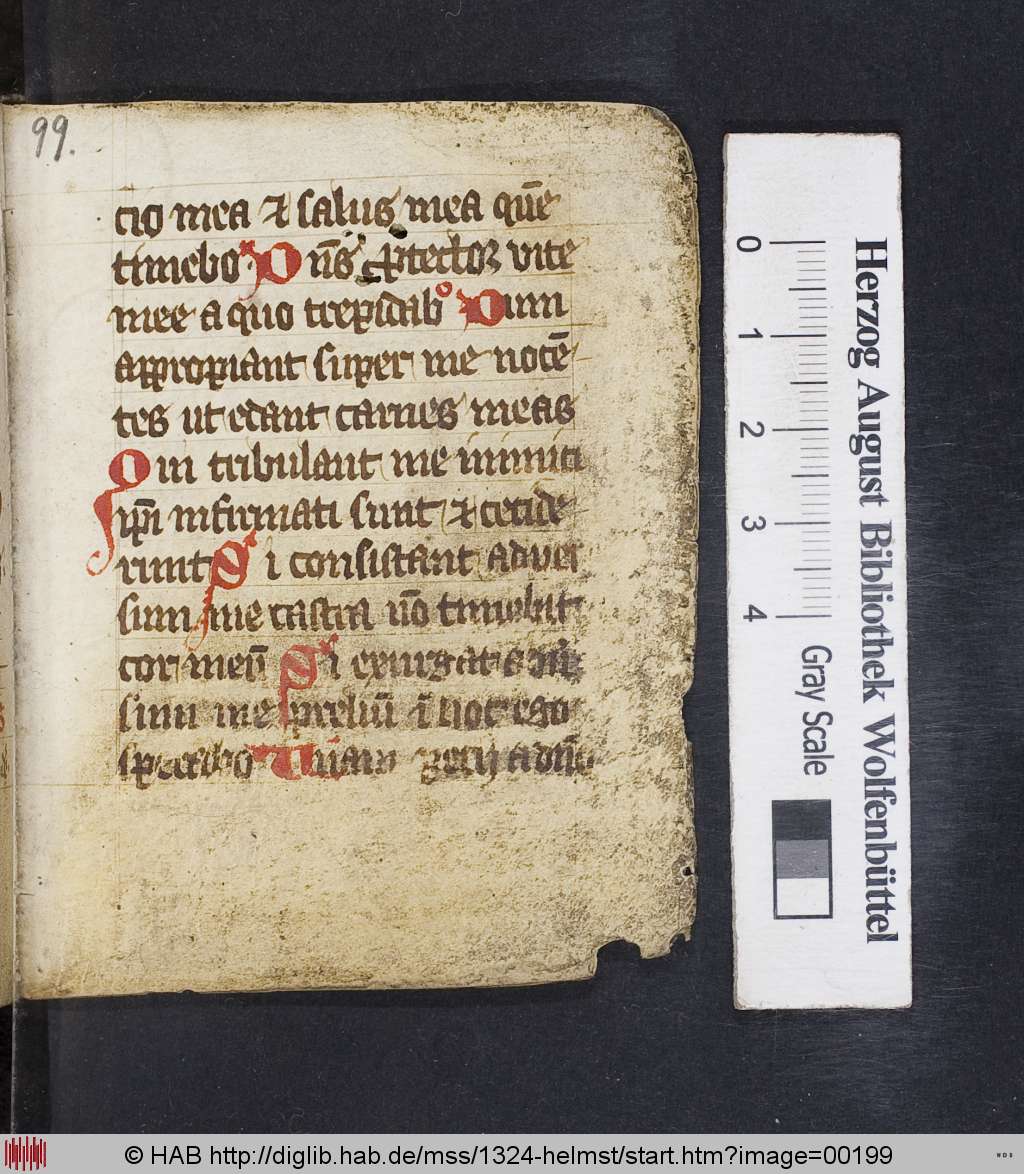 99.
cio mea ⁊ salus mea quē
timebo Dn̄s ꝓtector vite
mee a quo trepidabo Dum
appropiant super me nocē
tes ut edant carnes meas
Qui tribulant me inimici
ip̄i infirmati sunt ⁊ cecide
runt Si consistant adver
sum me castra nō timebit
cor meū Si exurgat adū
sum me preliū ī hoc ego
sperabo Unam
Herzog August Bibliothek Wolfenbüttel
0
1
2
3
4
Gray Scale
© HAB http://diglib.hab.de/mss/1324-helmst/start.htm?image=00199